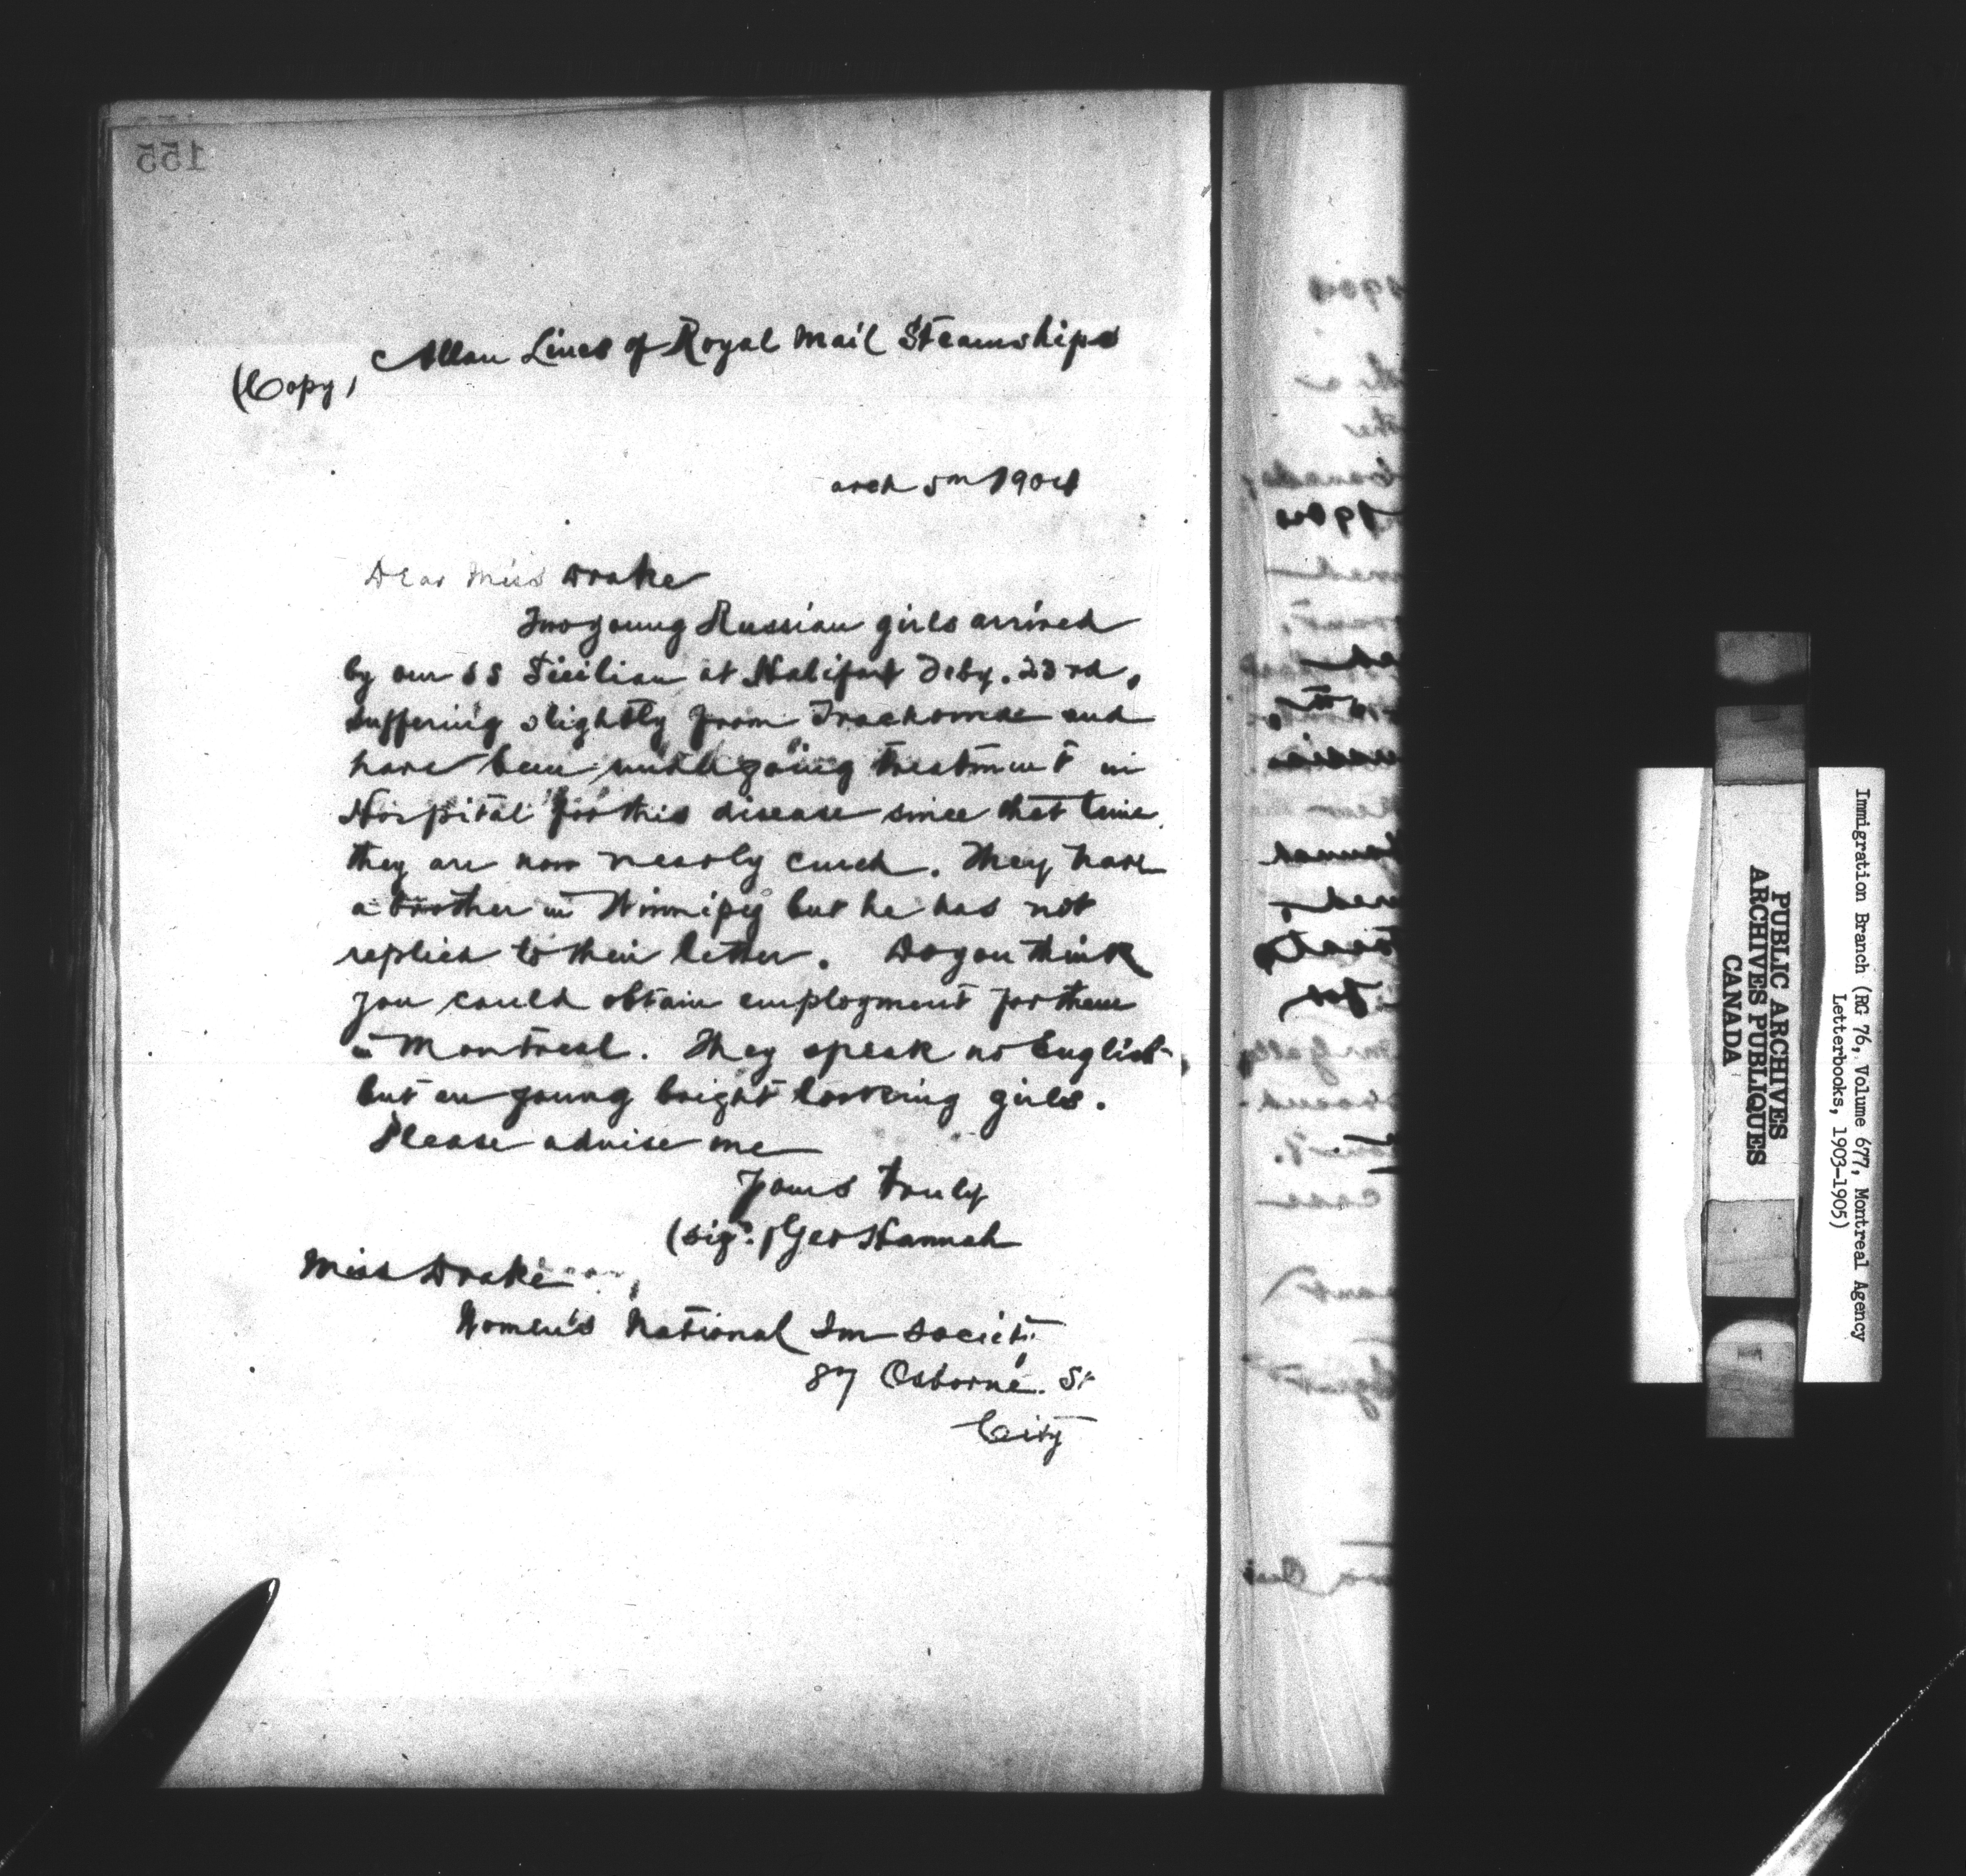 155
Allan Lines of Royal Mail Steamships
(Copy)
arch 5th 1904
Dear Miss Drake
Two young Russian girls arrived
by our SS Sicilian at Halifax Feby. 23rd,
suffering slightly from Trachomae and
have been undergoing treatment in
Hospital for this disease since that time.
they are now nearly cured. They have
a brother in Winnipeg but he has not
replied to their letter. Do you think
you could obtain employment for them
in Montreal. They speak no English
but are young bright looking girls.
Please advise me
Yours truly
(sigd.) Geo Hannah
Miss Drake
Women's National Im Society
87 Osborne St
City
Immigration Branch (RG 76, Volume 677, Montreal Agency
Letterbooks, 1903-1905)
PUBLIC ARCHIVES
ARCHIVES PUBLIQUES
CANADA